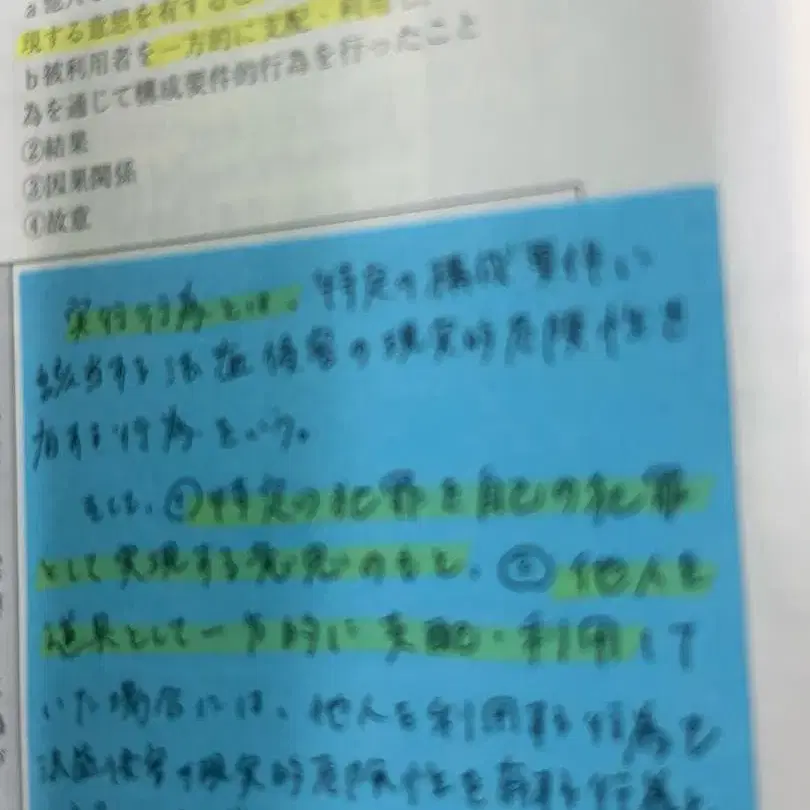 現する意思を有する
b被利用者を一方的に支配・利用し、
為を通じて構成要件的行為を行ったこと
②結果
③因果関係
④故意
実行行為とは、特定の構成要件に
該当する法益侵害の現実的危険性を
有する行為をいう。
もっとも、①特定の犯罪を自己の犯罪
として実現する意思のもと、②他人を
道具として一方的に支配・利用して
いた場合には、他人を利用する行為も
法益侵害の現実的危険性を有する行為と